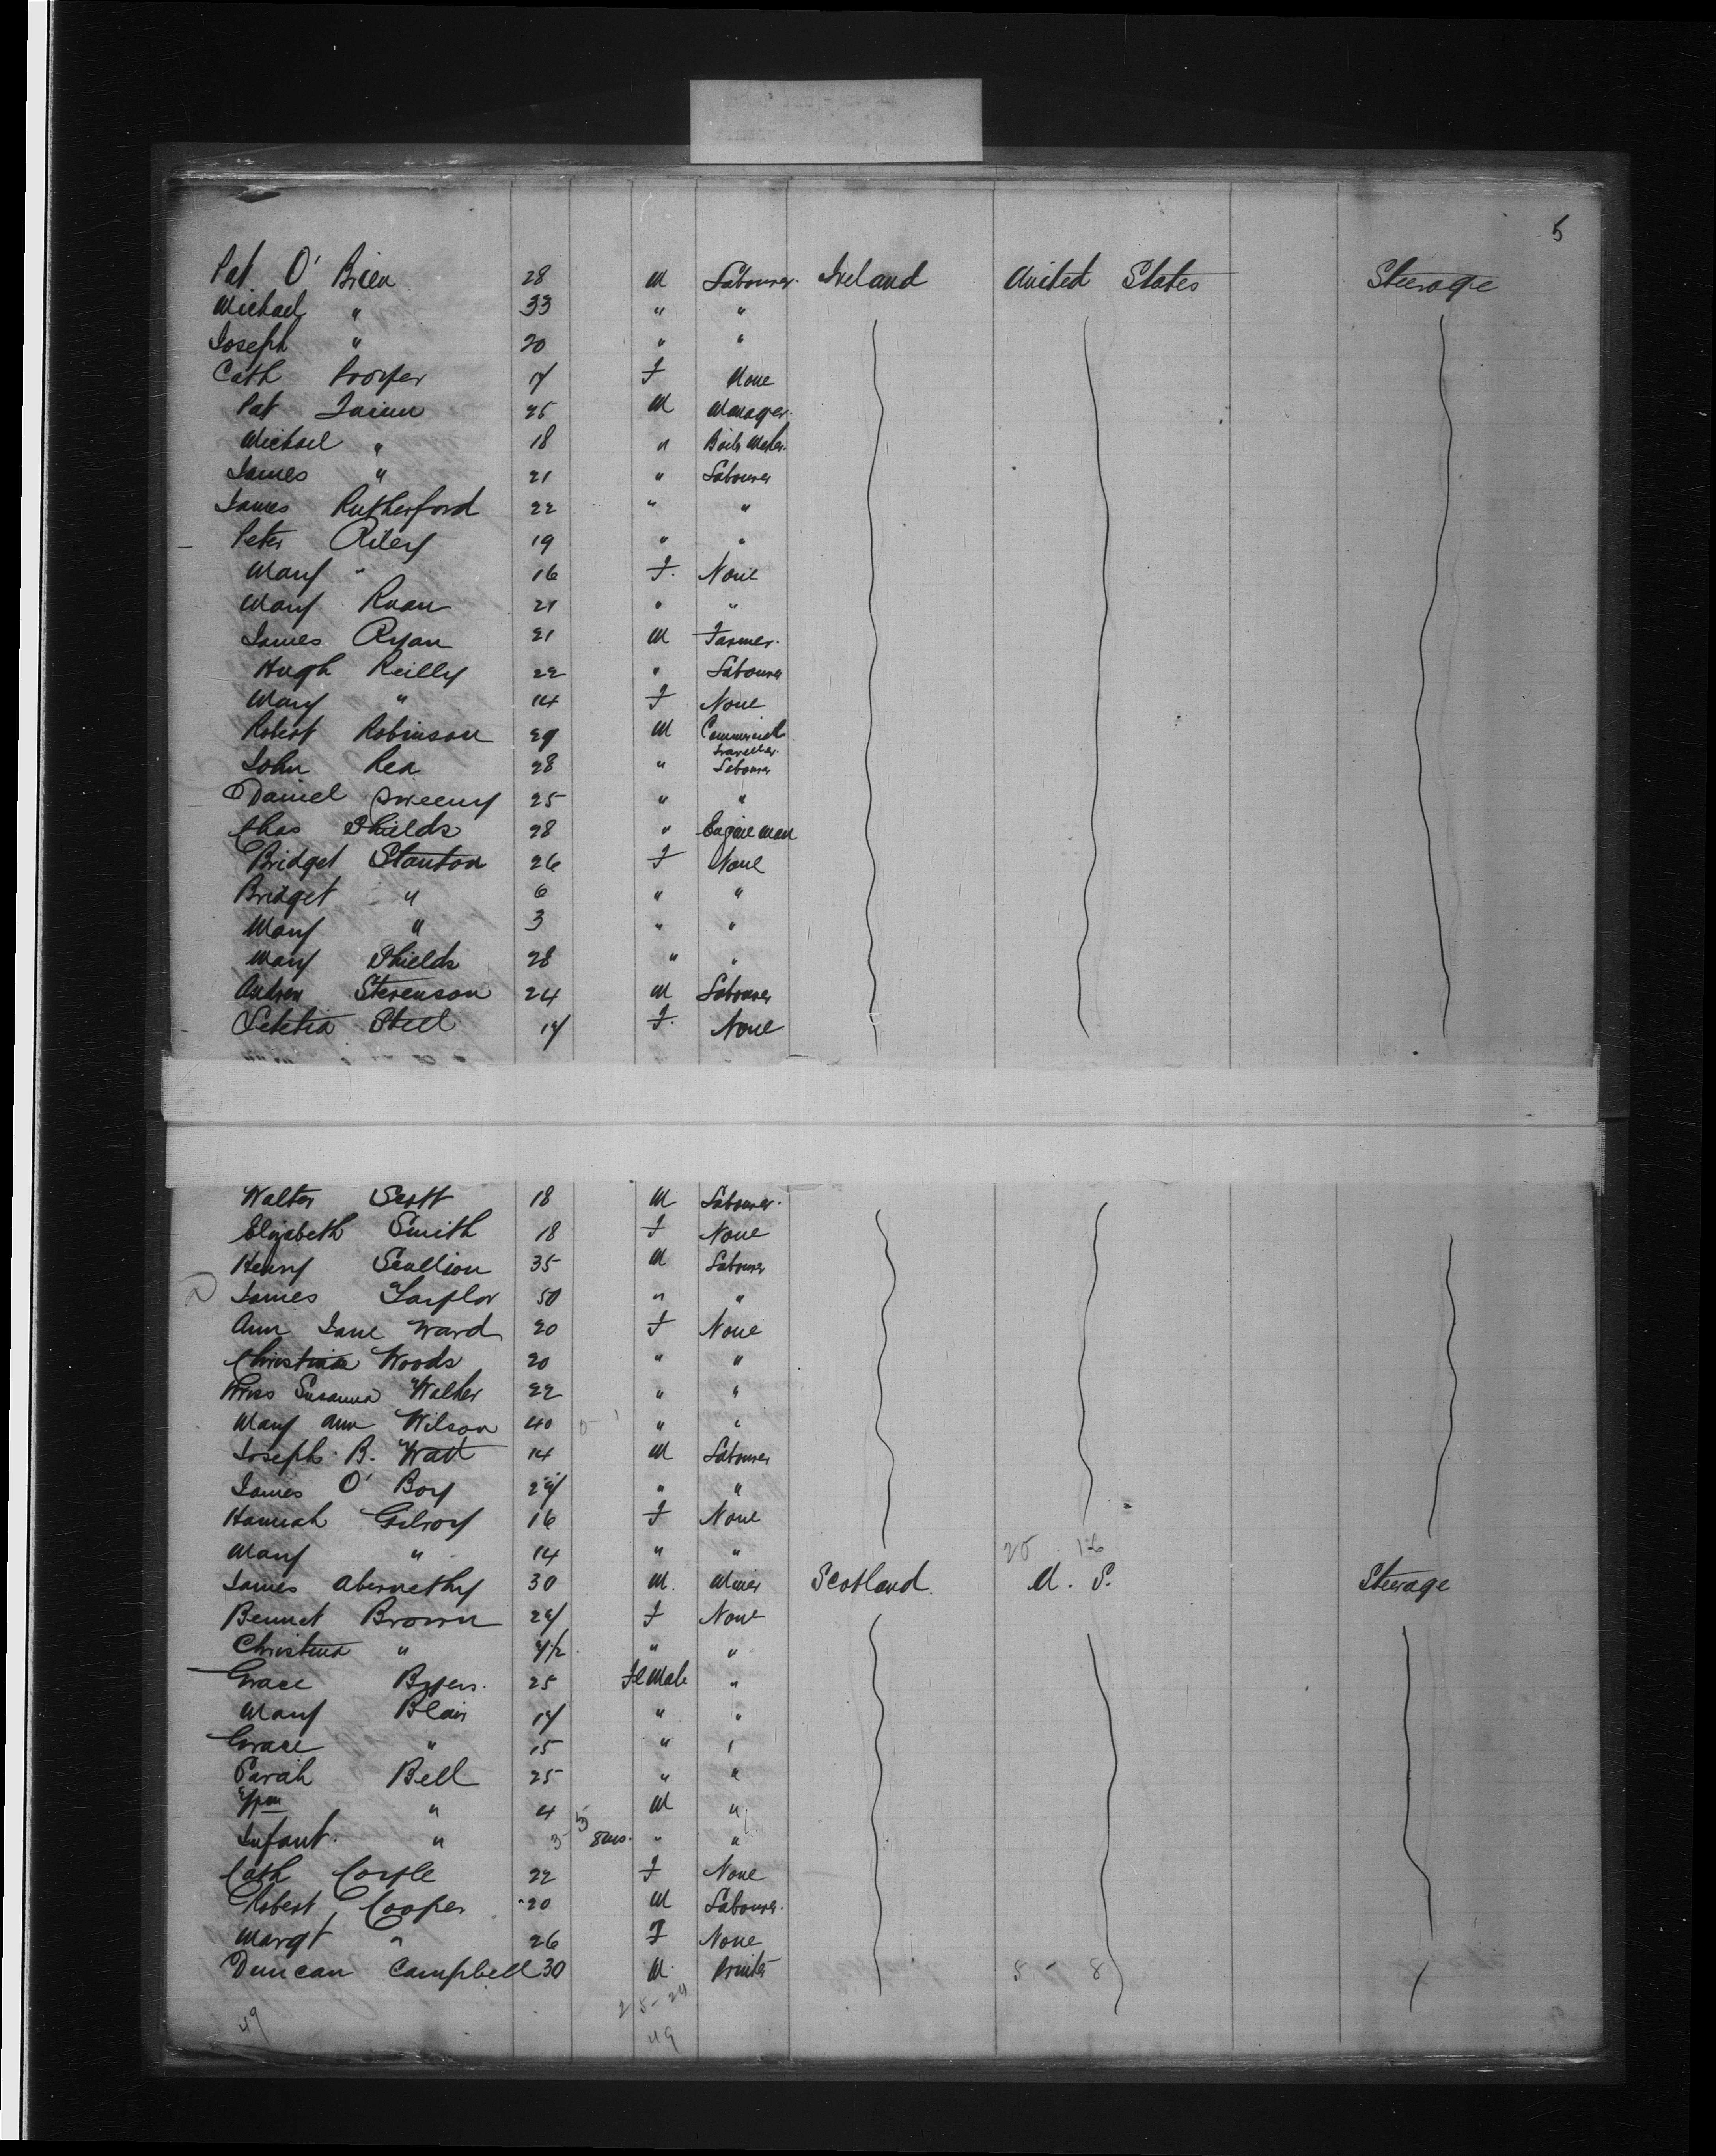 5
Pat O' Brien 28 M Labourer. Ireland United States Steerage
Michael " 33 " "
Joseph " 20 " "
Cath 17 F None
Pat 25 M Manager.
Michael " 18 " Boiler Maker.
James " 21 " Labourer
James Rutherford 22 " "
Peter Riley 19 " "
Mary " 16 F. None
Mary Ruan 21 " "
James Ryan 21 M Farmer.
Hugh Reilly 22 " Labourer
Mary " 14 F None
Robert Robinson 29 M Commercial
Traveller.
John Rea 28 " Labourer
Daniel Sweeny 25 " "
Chas Shields 28 " Engine man
Bridget Stanton 26 F None
Bridget " 6 " "
Mary " 3 " "
Mary Shields 28 " "
Andrew Stevenson 24 M Labourer
Letetia Steel 17 F. None
Walter Scott 18 M Labourer.
Elizabeth Smith 18 F None
Henry Scullion 35 M Labourer
James Taylor 50 " "
Ann Jane Ward 20 F None
Christina Woods 20 " "
Miss Susanna Walker 22 " "
Mary Ann Wilson 40 " "
Joseph B. Watt 14 M Labourer
James O' Boy 27 " "
Hannah Gilroy 16 F None
Mary " 14 " "
James Abernethy 30 M. Miner Scotland. U. S. Steerage
Bennet Brown 27 F None
Christina " 7/12 " "
Grace Byers. 25 Female "
Mary Blair 17 " "
Grace " 15 " "
Sarah Bell 25 " "
Wm " 4 M "
Infant. " 8 ms. " "
Cath Coyle 22 F None
Robert Cooper 20 M Labourer.
Margt " 26 F None
Duncan Campbell 30 M. Printer 8 - 8
49 25-24
49